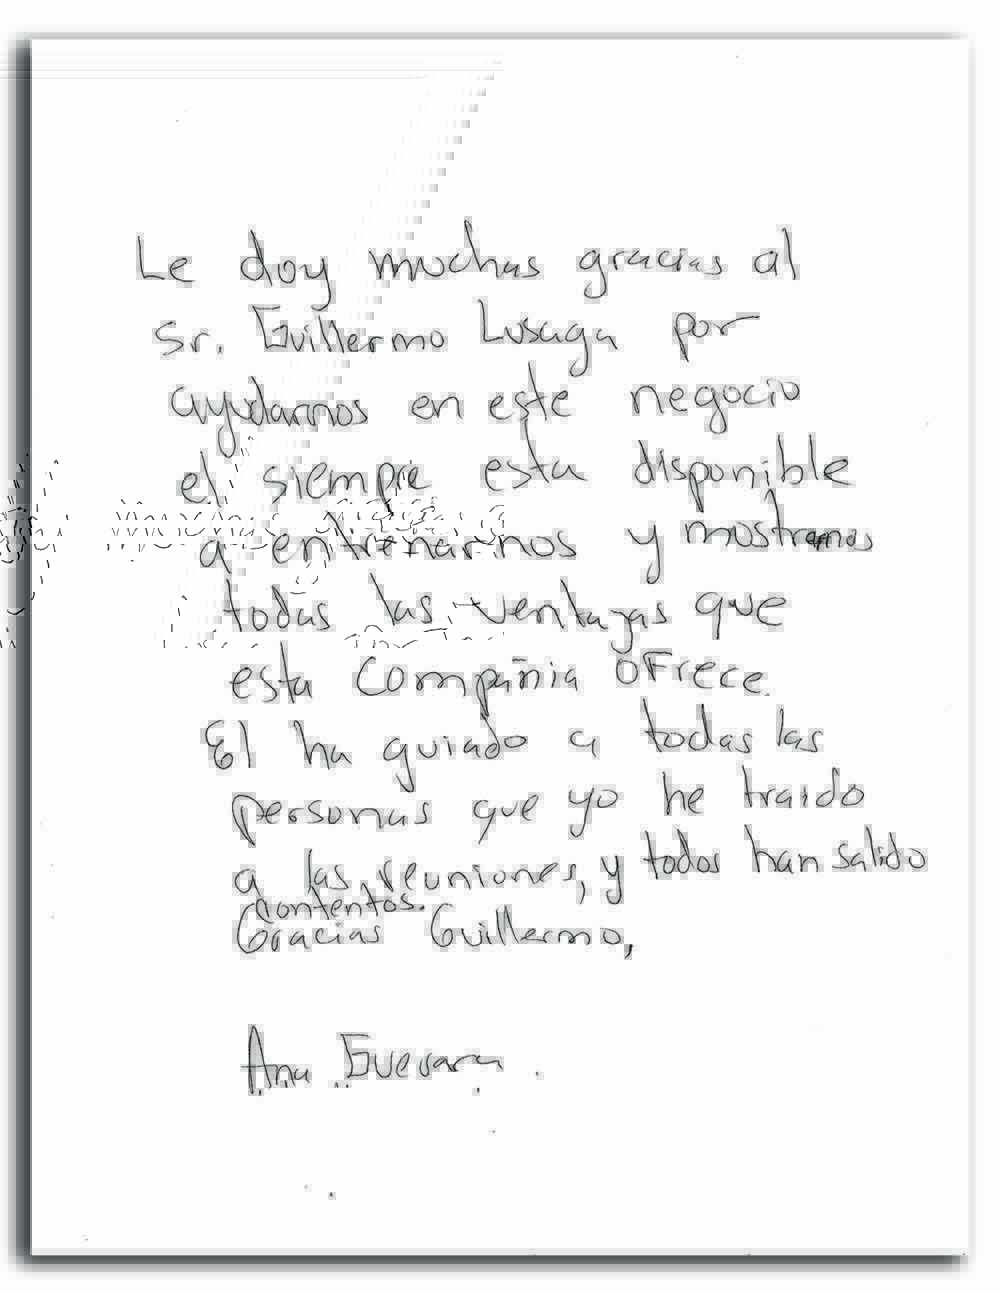 Le doy muchas gracias al
Sr. Guillermo Lusaga por
ayudarnos en este negocio
el siempre esta disponible
a entrenarnos y mostrarnos
todas las ventajas que
esta Compañia oFrece.
El ha guiado a todas las
personas que yo he traido
a las reuniones, y todos han salido
contentos.
Gracias Guillermo,
Ana Guevara.
muchas